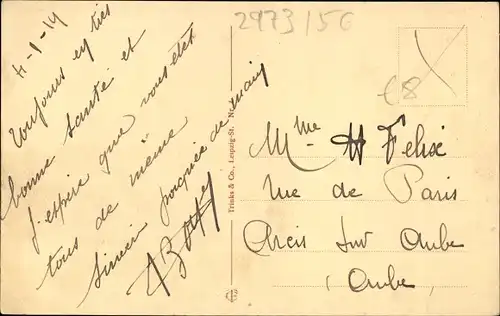 4-1-14
Toujours en très
bonne santé et
j'espère que vous êtes
tous de même
Sincère poignée de main
2973/56
€8
Trinks & Co., Leipzig-St.
Mme H Felix
rue de Paris
Arcis sur Aube
(Aube